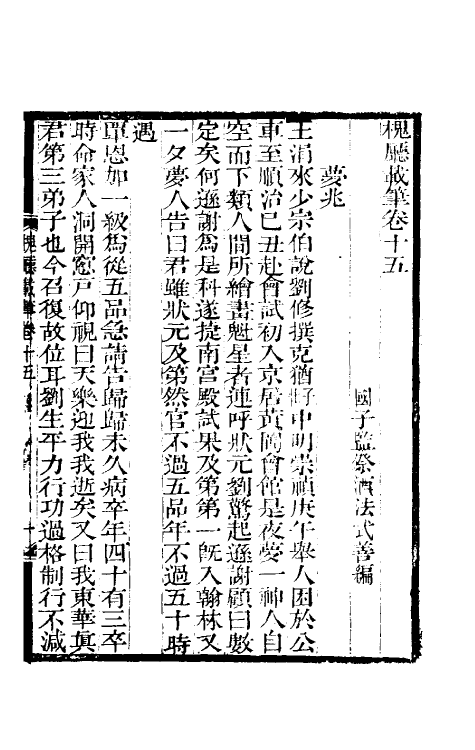 槐廳載筆卷十五
國子監祭酒法式善編
夢兆
王涓來少宗伯說劉修撰克猶子中明崇禎庚午舉人困於公
車至順治己丑赴會試初入京居黃岡會館是夜夢一神人自
空而下類人間所繪畫魁星者連呼狀元劉驚起遜謝顧曰數
定矣何遜謝爲是科遂捷南宮殿試果及第第一旣入翰林又
一夕夢人告曰君雖狀元及第然官不過五品年不過五十時
遇
覃恩加一級爲從五品急請告歸歸未久病卒年四十有三卒
時命家人洞開窻戸仰視曰天樂迎我我逝矣又曰我東華眞
君第三弟子也今召復故位耳劉生平力行功過格制行不減
槐廳載筆卷十五